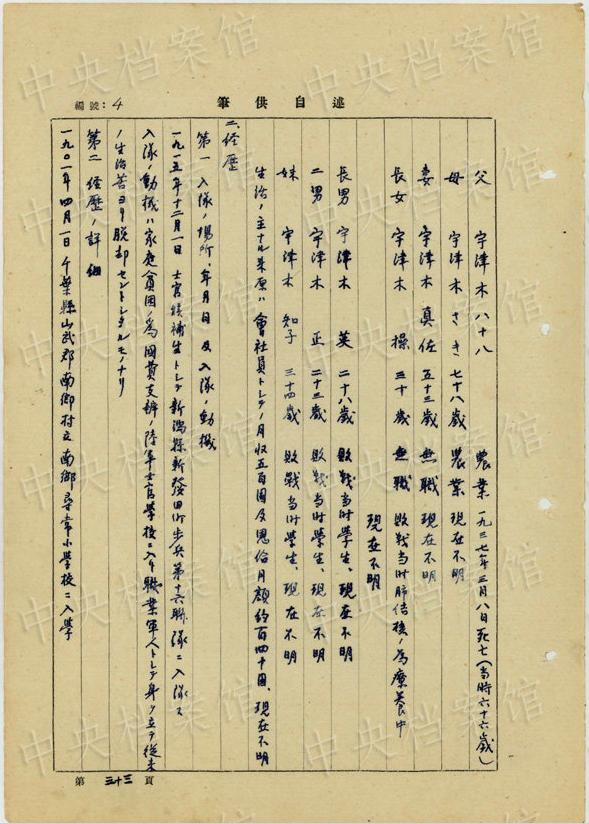 編號：4
筆供自述
父 宇津木八十八 農業 一九三七年三月八日死亡（当時六十六歳）
母 宇津木さき 七十八歳 農業 現在不明
妻 宇津木真佐 五十三歳 無職 現在不明
長女 宇津木操 三十歳 無職 敗戦当時肺結核ノ為療養中
現在不明
長男 宇津木英 二十八歳 敗戦当時学生、現在不明
二男 宇津木正 二十三歳 敗戦当時学生、現在不明
妹 宇津木知子 三十四歳 敗戦当時学生、現在不明
生活ノ主ナル来原ハ會社員トシテノ月収五百円及恩給月額約百四十円、現在不明
二、経歴
第一 入隊ノ場所、年月日及入隊ノ動機
一九一五年十二月一日 士官候補生トシテ新潟縣新発田町歩兵第十六聯隊ニ入隊ス
入隊ノ動機ハ家庭貧困ノ為國費支辨ノ陸軍士官学校ニ入リ職業軍人トシテ身ヲ立テ従来
ノ生活苦ヨリ脱却セントシタルモノナリ
第二 経歴ノ詳細
一九〇一年四月一日 千葉縣山武郡南郷村立南郷尋常小学校ニ入学
第 三十三 頁
中央档案馆